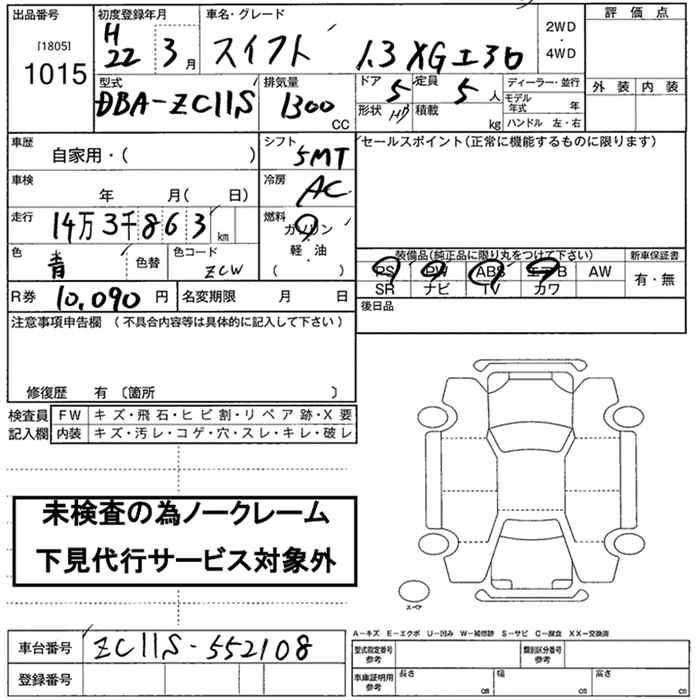 出品番号 初度登録年月 車名・グレード 評価点
[1805] 1015 H22 3月 スイフト 1.3 XG 2WD・4WD 外装 内装
型式 排気量 ドア 定員 ディーラー・並行
DBA-ZC11S 1300 CC 5 5人 モデル年式 年
形状 HB 積載 kg ハンドル 左・右
車歴 シフト セールスポイント(正常に機能するものに限ります)
自家用・( ) 5MT
車検 冷房
年 月( 日) AC
走行 燃料
14万3千863km ガソリン
軽・油
( )
色 色替 色コード 装備品(純正品に限り丸をつけて下さい) 新車保証書
青 ZCW PS PW ABS エアB AW 有・無
SR ナビ TV カワ
R券 10,090円 名変期限 月 日 後日品
注意事項申告欄 (不具合内容等は具体的に記入して下さい)
修復歴 有 〔箇所 〕
検査員 FW キズ・飛石・ヒビ割・リペア跡・X要
記入欄 内装 キズ・汚レ・コゲ・穴・スレ・キレ・破レ
未検査の為ノークレーム
下見代行サービス対象外
スペア
A-キズ E-エクボ U-凹み W-補修跡 S-サビ C-腐食 XX-交換済
車台番号 ZC11S-552108 型式指定番号 参考 類別区分番号 参考
登録番号 車庫証明用 参考 長さ cm 幅 cm 高さ cm